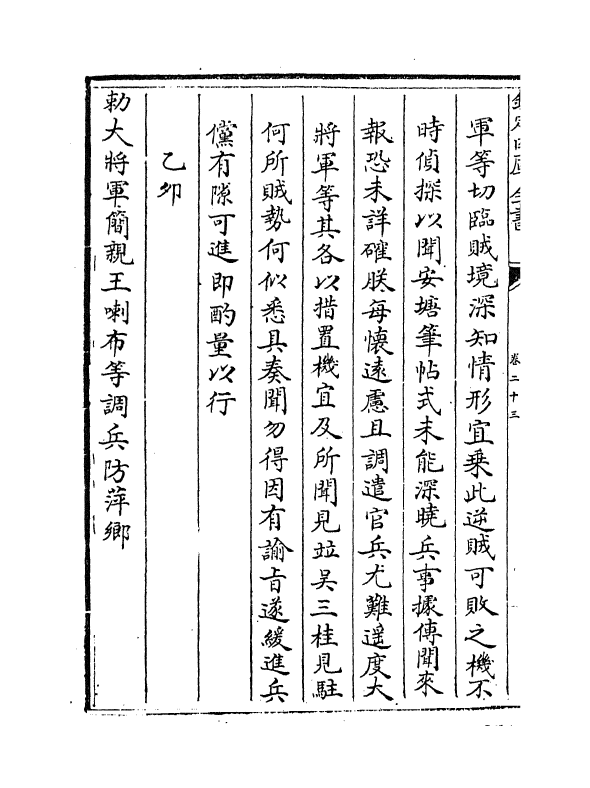 卷二十三
軍等切臨賊境深知情形宜乗此逆賊可敗之機不
時偵探以聞安塘筆帖式未能深曉兵事據傳聞來
報恐未詳確朕每懷遠慮且調遣官兵尤難遥度大
將軍等其各以措置機宜及所聞見竝吴三桂見駐
何所賊勢何似悉具奏聞勿得因有諭㫖遂緩進兵
儻有隙可進即酌量以行
乙夘
勅大將軍簡親王喇布等調兵防萍鄉